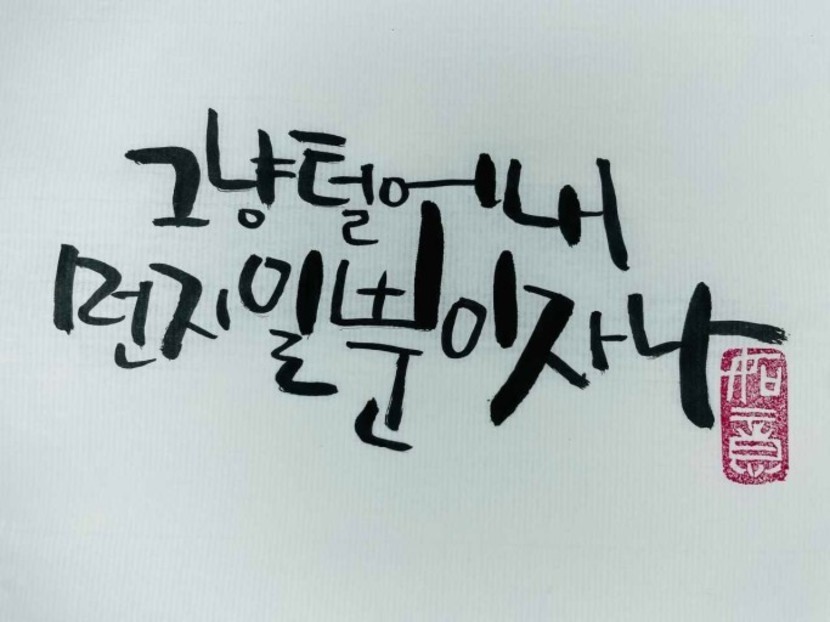 그냥털어내
먼지일뿐이자나